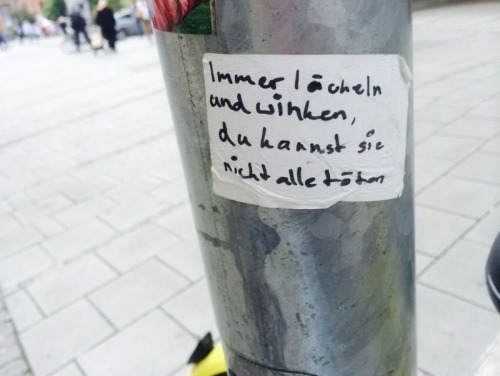 Immer lächeln
und winken,
du kannst sie
nicht alle töten